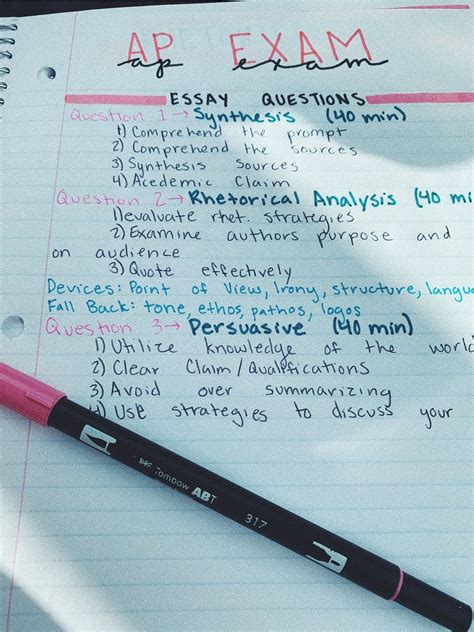 AP EXAM
ap exam
ESSAY QUESTIONS
Question 1 → Synthesis (40 min)
1) Comprehend the prompt
2) Comprehend the sources
3) Synthesis Sources
4) Acedemic Claim
Question 2 → Rhetorical Analysis (40 mi
1) evaluate rhet. strategies
2) Examine authors purpose and
on audience
3) Quote effectively
Devices: Point of View, Irony, structure, langu
Fall Back: tone, ethos, pathos, logos
Question 3 → Persuasive (40 min)
1) Utilize knowledge of the world
2) Clear Claim/Qualifications
3) Avoid over summarizing
4) Use strategies to discuss your
Tombow ABT
317